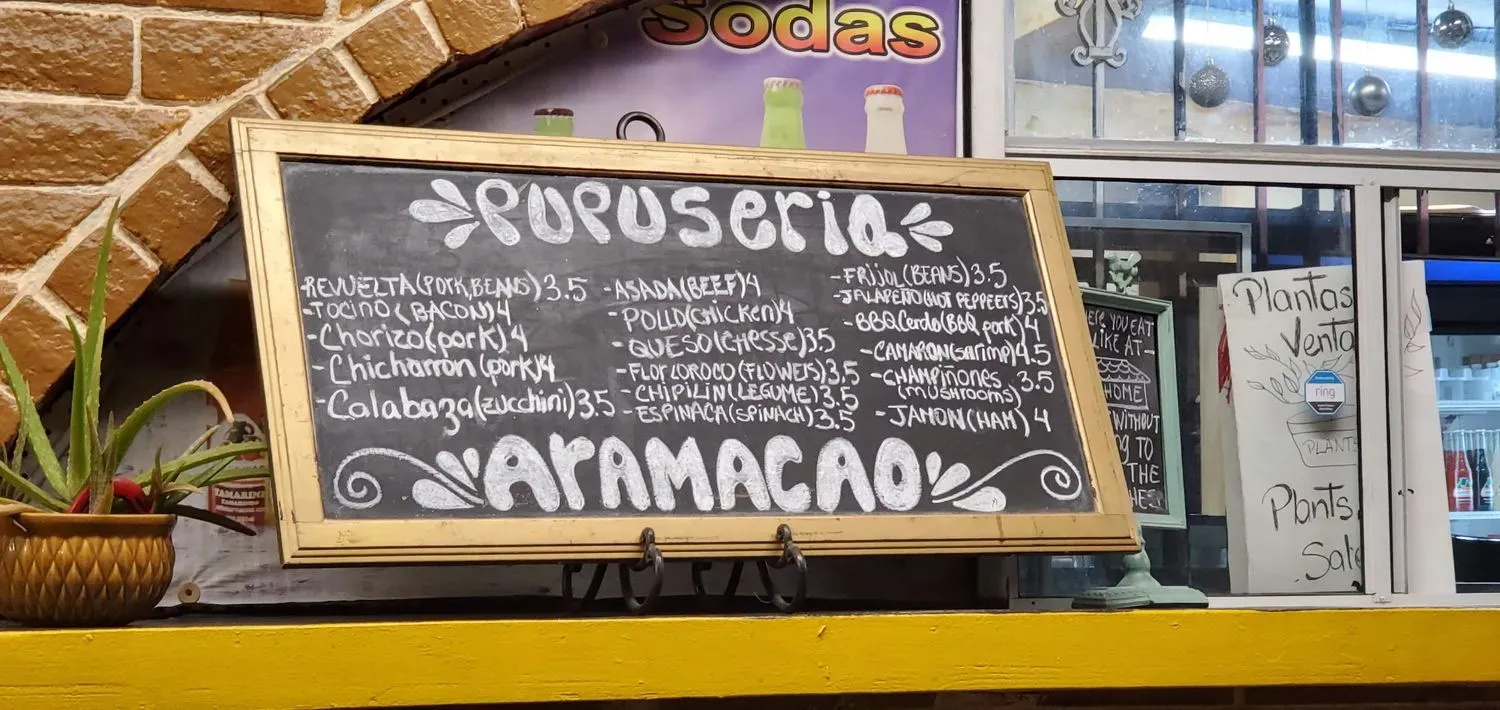 Sodas
PUPUSERIA
REVUELTA(PORK,BEANS)3.5
-TOCINO(BACON)4
-Chorizo(pork)4
-Chicharron(pork)4
-Calabaza(zucchini)3.5
-ASADA(BEEF)4
-POLLO(CHICKEN)4
-QUESO(CHESSE)3.5
-FLOR LOROCO(FLOWERS)3.5
-CHIPILIN(LEGUME)3.5
-ESPINACA(SPINACH)3.5
-FRIJOL(BEANS)3.5
-JALAPEÑO(HOT PEPPEERS)3.5
-BBQ Cerdo(BBQ pork)4
-CAMARON(sarimp)4.5
-CHAMPIÑONES 3.5
(MUSHROOMS)
-JAMON(HAM) 4
ARAMACAO
TAMARINDO
YOU EAT
LIKE AT-
HOME
WITHOUT
TO
THE
Plantas
Venta
ring
PLANTS
Plants
Sale